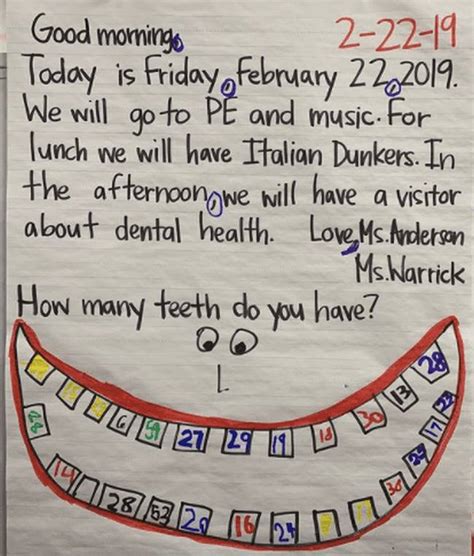 Good morning, 2-22-19
Today is Friday, February 22, 2019.
We will go to PE and music. For
lunch we will have Italian Dunkers. In
the afternoon, we will have a visitor
about dental health. Love, Ms. Anderson
Ms. Warrick
How many teeth do you have?
6 59 27 29 19 18 30 13 28
14 28 53 20 16 24 30 29 17